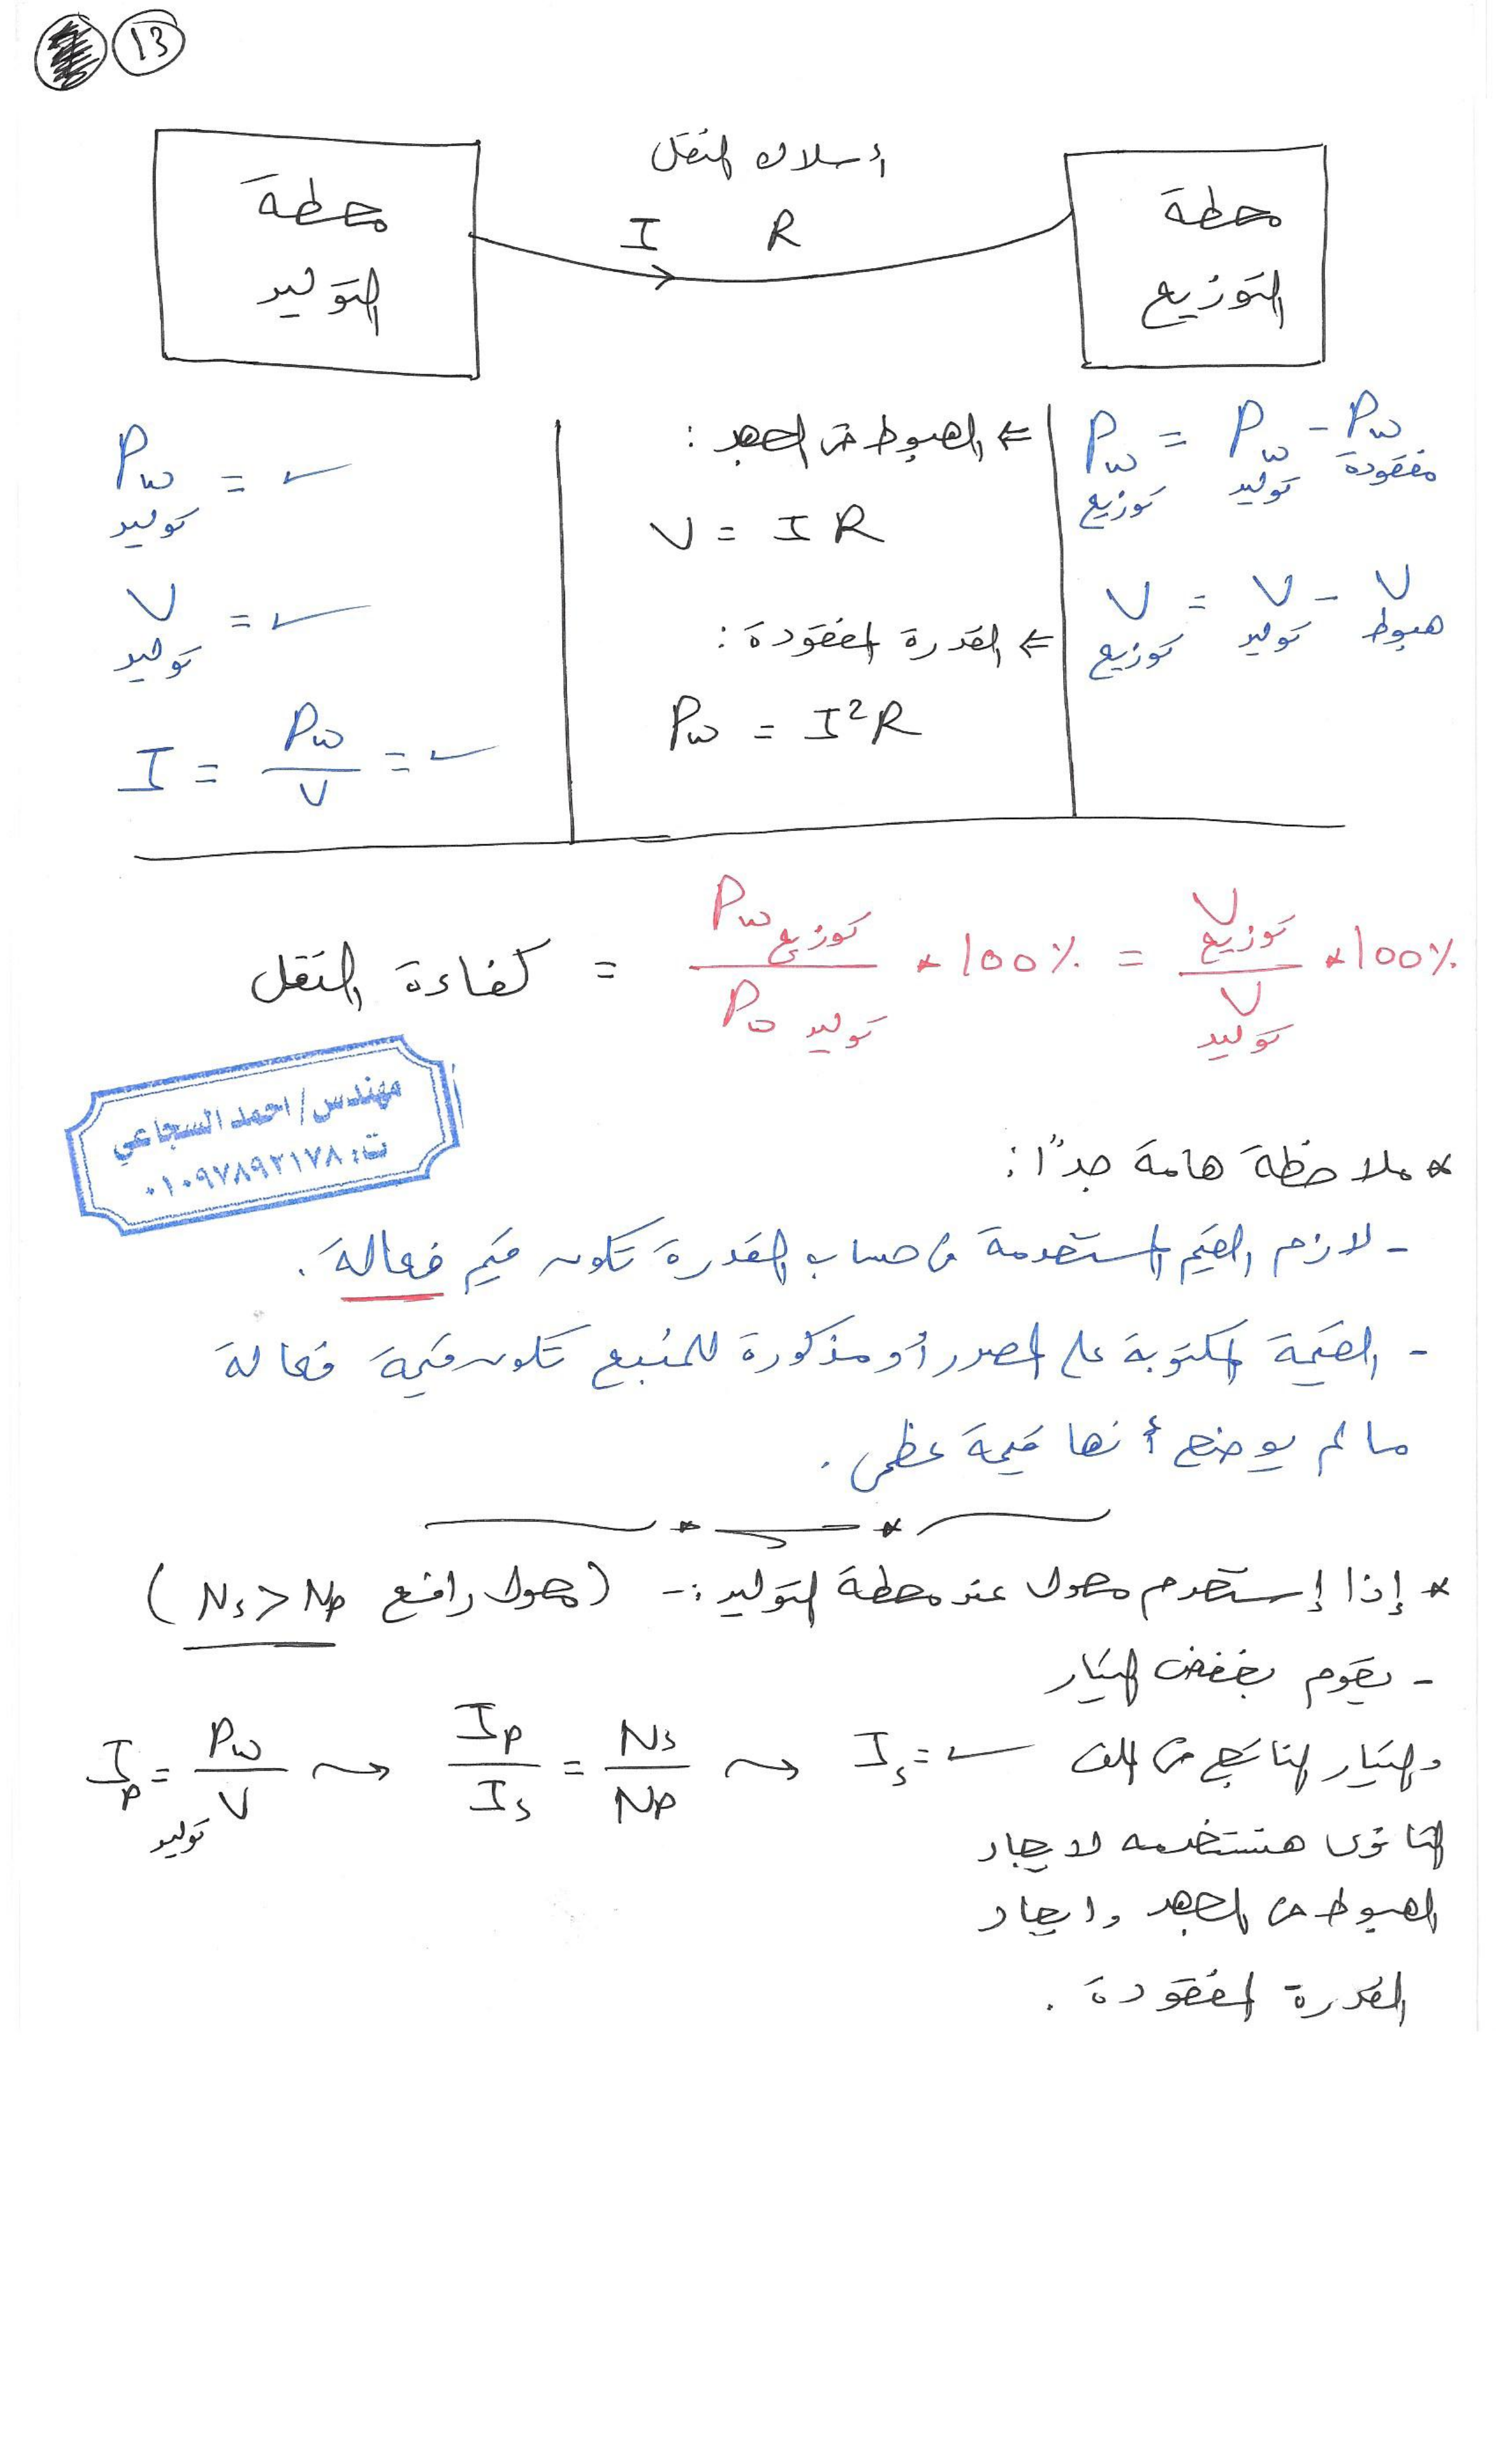 13
أسلاك النقل
محطة التوليد
I R
محطة التوزيع
Pw توليد = ✓
V توليد = ✓
I = Pw / V = ✓
⇐ الهبوط في الجهد :
V = I R
⇐ القدرة المفقودة :
Pw = I²R
Pw توزيع = Pw توليد - Pw مفقودة
V توزيع = V توليد - V هبوط
كفاءة النقل = Pw توزيع / Pw توليد * 100% = V توزيع / V توليد * 100%
مهندس/احمد السجاعي
ت: ٠١٠٩٧٨٩٢١٧٨
* ملاحظة هامة جدًا :
- لازم القيم المستخدمة في حساب القدرة تكون قيم فعالة .
- القيمة المكتوبة على المصدر أو مذكورة للمنبع تكون قيمة فعالة
ما لم يوضح أنها قيمة عظمى .
* إذا إستخدم محول عند محطة التوليد :- (محول رافع Ns > Np)
- يقوم بخفض التيار
والتيار الناتج من الملف
Ip = Pw / V توليد ⇝ Ip / Is = Ns / Np ⇝ Is = ✓
الثانوى هنستخدمه لايجاد
الهبوط في الجهد وايجاد
القدرة المفقودة .